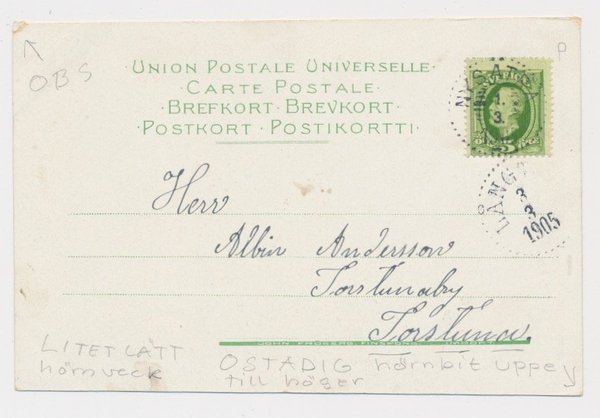 OBS
UNION POSTALE UNIVERSELLE·
·CARTE POSTALE·
·BREFKORT·BREVKORT·
·POSTKORT·POSTIKORTTI·
NYSÄTRA
1.
3.
LÅNG
3
3
1905
Herr
Albin Andersson
Torslundaby
Torslunda.
LITET LÄTT
hörnveck
OSTADIG hörnbit uppe
till höger